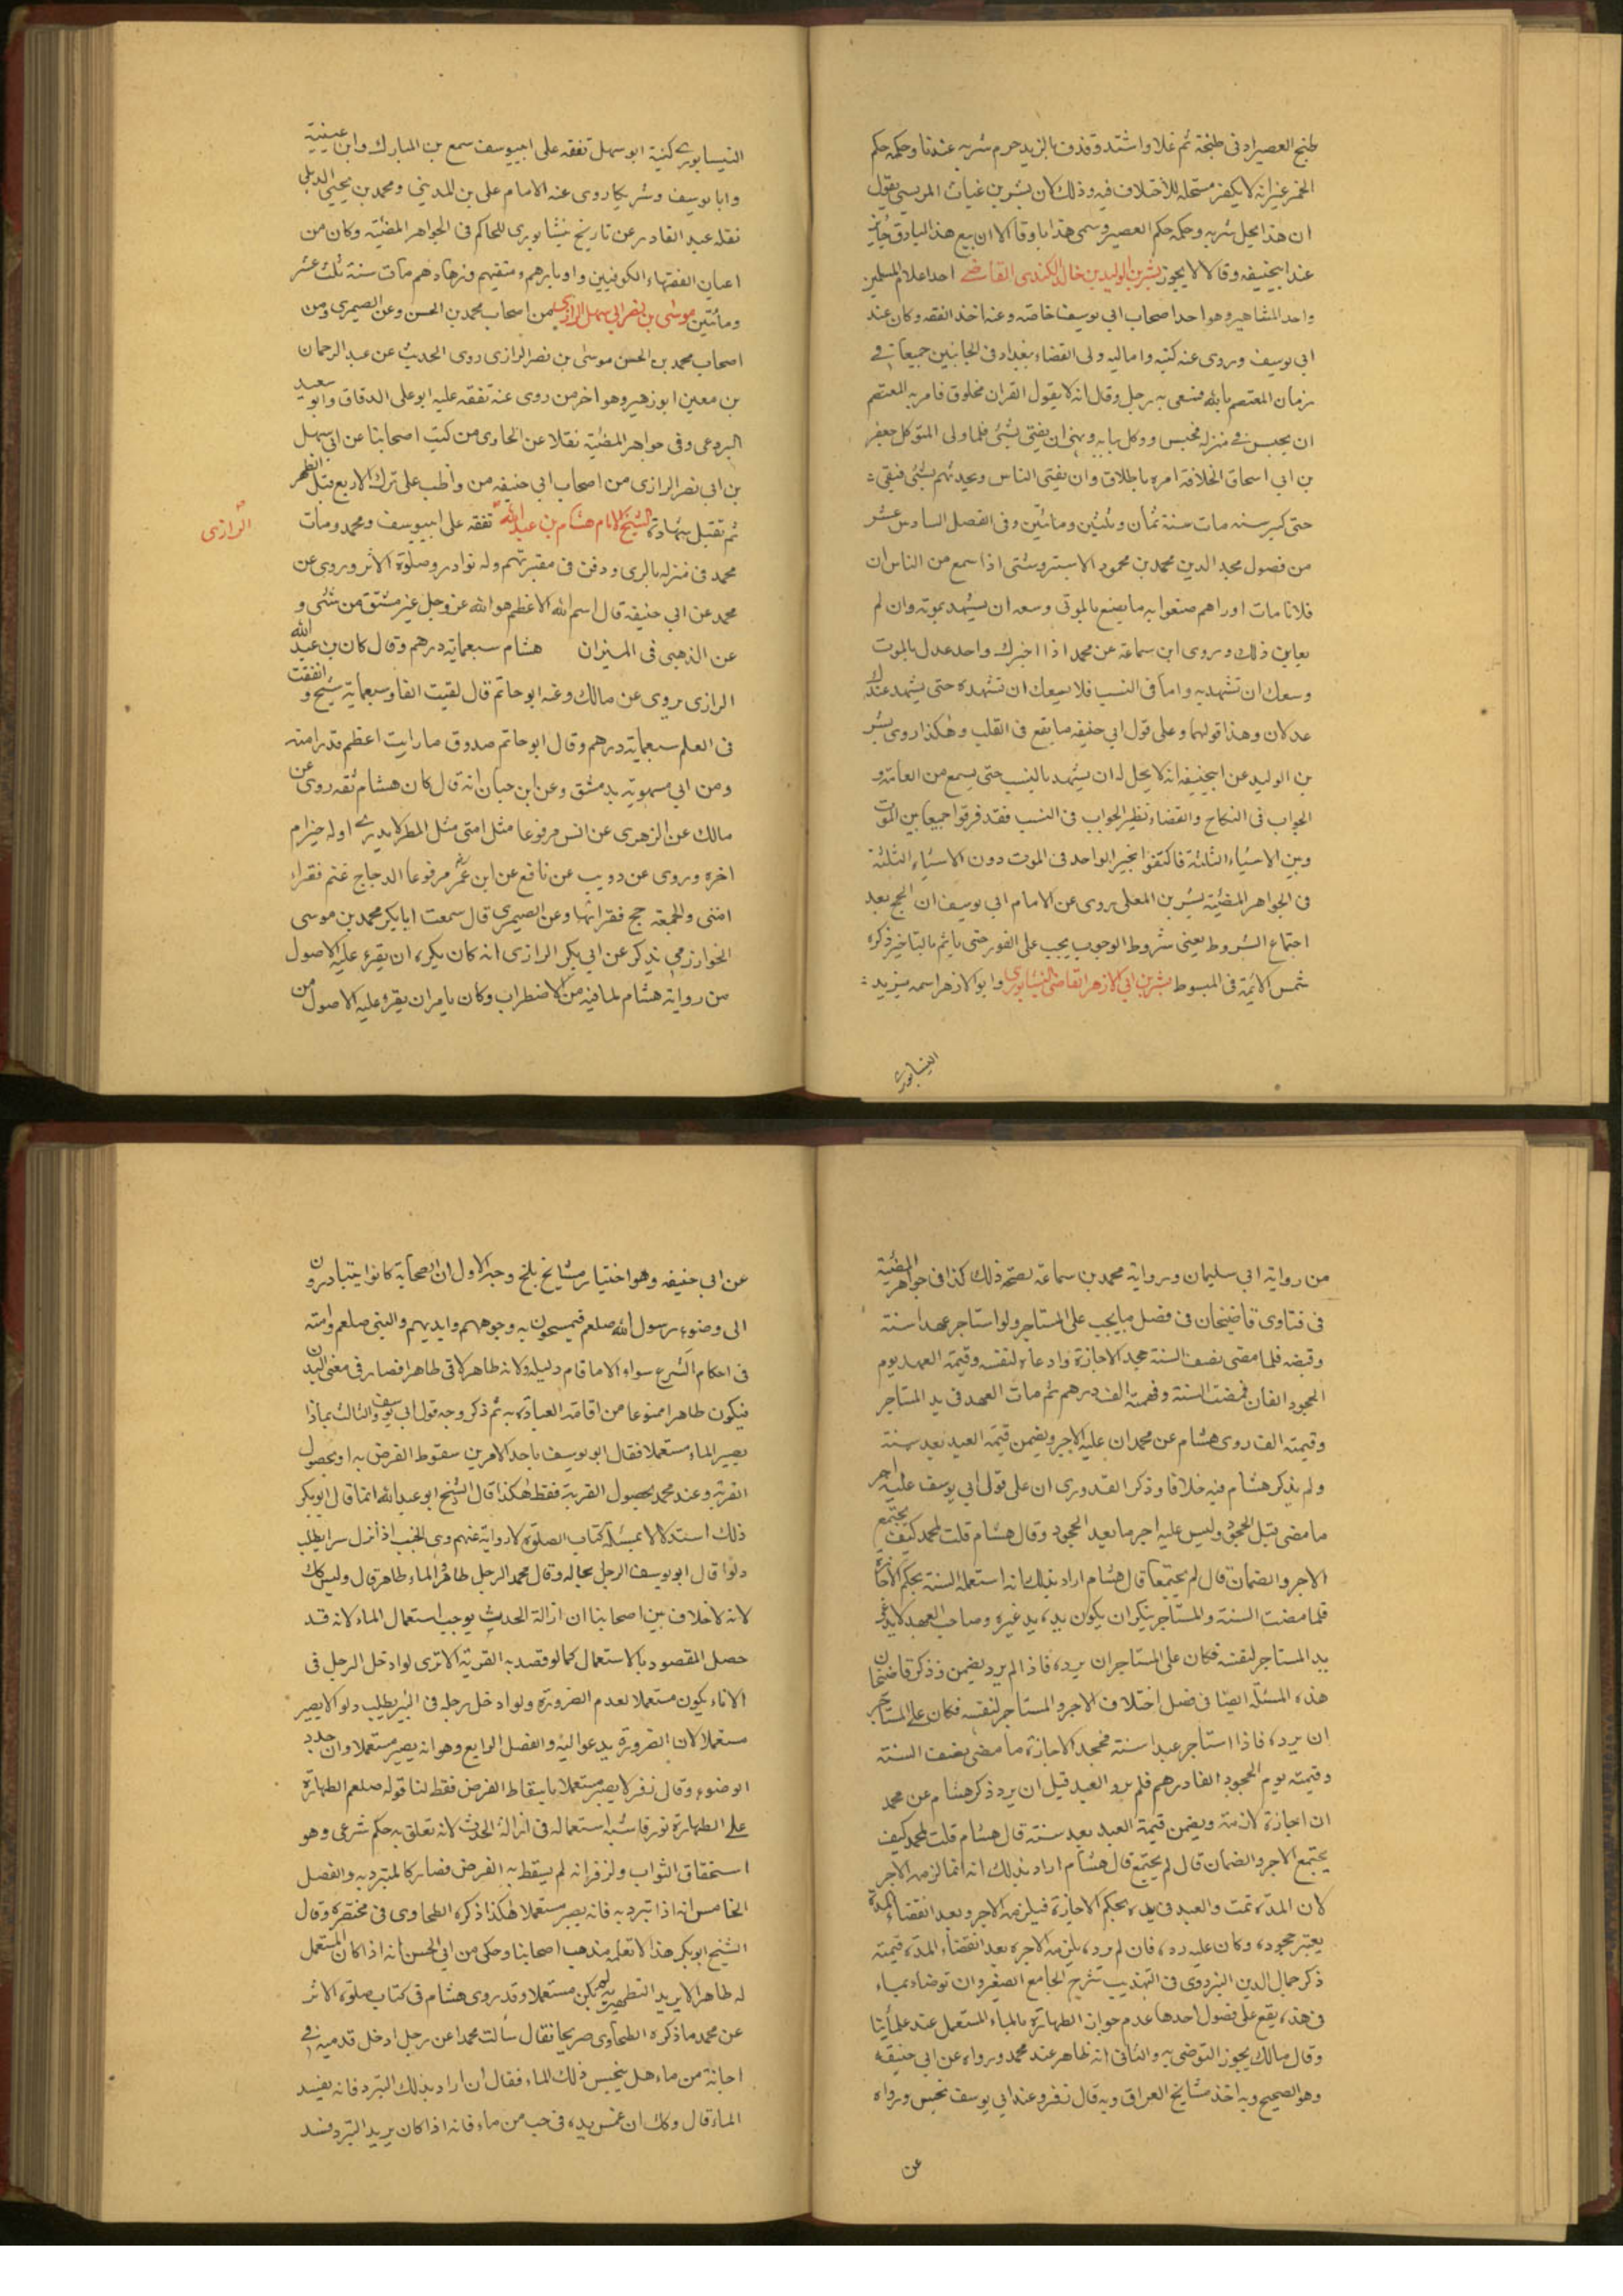 طبخ العصير ادنى طبخة ثم غلا واشتد وقذف بالزبد حرم شربه عندنا وحكمه حكم
الخمر غير انه لا يكفر مستحله للأختلاف فيه وذلك لان بشر بن غياث المريسي يقول
ان هذا يحل شربه وحكمه حكم العصير وسمى هذا اباو قالا ان بيع هذا البادق جائز
عند ابيحنيفه وقالا لا يجوز بشر بن الوليد بن خالد الكندى القاضے احد اعلام المسلمين
واحد المشاهير وهو احد اصحاب ابى يوسف خاصّه وعنه اخذ الفقه وكان عند
ابى يوسف وروى عنه كتبه واماليه ولى القضاء ببغداد فى الجانبين جميعا فے
زمان المعتصم بالله فسعى به رجل وقال انه لا يقول القران مخلوق فامر به المعتصم
ان يحبس فے منزله فحبس ووكل ببابه ونهى ان يفتى بشئ فلما ولى المتوكل جعفر
بن ابى اسحاق الخلافة امر باطلاقه وان يفتى الناس ويحدثهم بشئ فبقى
حتى كبر سنه مات سنة ثمان وثلثين ومائتين وفى الفصل السادس عشر
من فصول مجد الدين محمد بن محمود الاستروشنى اذا سمع من الناس ان
فلانا مات او راهم صنعوا به ما يصنع بالموتى وسعه ان يشهد بموته وان لم
يعاين ذلك وروى ابن سماعة عن محمد اذا اخبرك واحد عدل بالموت
وسعك ان تشهد به واما فى النسب فلا يسعك ان تشهده حتى يشهد عندك
عدلان وهذا قولهما وعلى قول ابى حنيفه ما يقع فى القلب وهكذا روى بشر
بن الوليد عن ابيحنيفه انه لا يحل له ان يشهد بالنسب حتى يسمع من العامة و
الجواب فى النكاح والقضاء نظير الجواب فى النسب فقد فرقوا جميعا بين الموت
وبين الاشياء الثلثة فاكتفوا بخبر الواحد فى الموت دون الاشياء الثلثة
فى الجواهر المضئية بشر بن المعلى روى عن الامام ابى يوسف ان الحج بعد
اجتماع الشروط يعنى شروط الوجوب يجب على الفور حتى ياثم بالتاخير ذكره
شمس الائمة فى المبسوط بشر بن ابى الازهر القاضى النيسابورى وابو الازهر اسمه يزيد
النيسابورے
النيسابورے كنية ابو سهل تفقه على ابييوسف سمع بن المبارك وابن عيينة
وابا يوسف وشريكا روى عنه الامام على بن المدينى ومحمد بن يحيى الذهلى
نقله عبد القادر عن تاريخ نيشابورى للحاكم فى الجواهر المضئية وكان من
اعيان الفقهاء الكوفيين وادبايرهم ومتقيهم وزهادهم مات سنة ثلث عشر
ومائتين موسى بن نصر ابى سهل الرازى من اصحاب محمد بن الحسن وعن الصيمرى ومن
اصحاب محمد بن الحسن موسى بن نصر الرازى روى الحديث عن عبد الرحمان
بن معين ابو زهير وهو اخر من روى عنه تفقه عليه ابو على الدقاق وابو سعيد
البردعى وفى جواهر المضئية نقلا عن الحاوى من كتب اصحابنا عن ابى سهل
بن ابى نصر الرازى من اصحاب ابى حنيفه من واظب على ترك الاربع قبل الظهر
ثم تقبل شهادته الشيخ الامام هشام بن عبد الله تفقه على ابييوسف ومحمد ومات
الرازى
محمد فى منزله بالرى ودفن فى مقبرتهم وله نوادر وصلوة الاثر وروى عن
محمد عن ابى حنيفه قال اسم الله الاعظم هو الله عز وجل غير مشتق من شئ و
عن الذهبى فى الميزان هشام سبعماية درهم وقال كان بن عبد الله
الرازى يروى عن مالك وعنه ابو حاتم قال لقيت الفا وسبعماية شيخ و انفقت
فى العلم سبعماية درهم وقال ابو حاتم صدوق ما رايت اعظم قدرا منه
ومن ابى مسهوية بدمشق وعن ابن حبان انه قال كان هشام ثقه روى عن
مالك عن الزهرى عن انس مرفوعا مثل امتى مثل المطر لا يدرے اوله خير ام
اخره وروى عن دويب عن نافع عن ابن عمر مرفوعا الدجاج غنم فقراء
امتى والجمعة حج فقرائها وعن الصيمرى قال سمعت ابا بكر محمد بن موسى
الخوارزمى يذكر عن ابى بكر الرازى انه كان يكره ان يقرء عليه الاصول
من رواية هشام لما فيه من الاضطراب وكان يامر ان يقرء عليه الاصول من
من رواية ابى سليمان ورواية محمد بن سماعة لصحة ذلك كذا فى جواهر المضئية
فى فتاوى قاضيخان فى فصل ما يجب على المستاجر ولو استاجر عبدا سنة
وقبضه فلما مضى نصف السنة جحد الاجازة وادعاه لنفسه وقيمة العبد يوم
الجحود الفان فمضت السنة وقيمته الف درهم ثم مات العبد فى يد المستاجر
وقيمته الف روى هشام عن محمد ان عليه الاجر ويضمن قيمة العبد بعد سنة
ولم يذكر هشام فيه خلافا وذكر القدورى ان على قول ابى يوسف عليه اجر
ما مضى قبل الجحود وليس عليه اجر ما بعد الجحود وقال هشام قلت لمحمد كيف يجتمع
الاجر والضمان قال لم يجتمعا قال هشام اراد بذلك انه استعمله السنة بحكم الاجازة
فلما مضت السنة والمستاجر ينكر ان يكون بيده يد غيره وصاحب العبد لا يدعى
يد المستاجر لنفسه فكان على المستاجر ان يرده فاذا لم يرد يضمن وذكر قاضيخان
هذه المسئلة ايضا فى فصل اختلاف الاجر والمستاجر لنفسه فكان على المستاجر
ان يرده فاذا استاجر عبدا سنة فجحد الاجازة ما مضى نصف السنة
وقيمته يوم الجحود الفا درهم فلم يرد العبد قبل ان يرد ذكر هشام عن محمد
ان اجازة لازمة ويضمن قيمة العبد بعد سنة قال هشام قلت لمحمد كيف
يجتمع الاجر والضمان قال لم يجتمع قال هشام اراد بذلك انه انما لزمه الاجر
لان المدة تمت والعبد فى يده بحكم الاجازة فيلزمه الاجر وبعد انقضاء المدة
يعتبر جحوده وكان عليه رده فان لم يرده يلزمه الاجره بعد انقضاء المدة قيمته
ذكر جمال الدين البزدوى فى التهذيب شرح الجامع الصغير وان توضاء بماء
فى هذه يقع على فصول احدها عدم جواز الطهارة بالماء المستعمل عند علمائنا
وقال مالك يجوز التوضى به والثانى انه طاهر عند محمد ورواه عن ابى حنيفه
وهو الصحيح وبه اخذ مشايخ العراق وبه قال زفر وعند ابى يوسف نجس ورواه
عن
عن ابى حنيفه وهو اختيار مشايخ بلخ وجه الاول ان الصحابة كانوا يتبادرون
الى وضوء رسول الله صلعم فيمسحون به وجوههم وايديهم والنبى صلعم وامته
فى احكام الشرع سواء الا ما قام دليله ولانه طاهر لاقى طاهرا فصار فى معنى البدن
فيكون طاهرا ممنوعا من اقامة العبادة به ثم ذكر وجه قول ابى يوسف والثالث بماذا
يصير الماء مستعملا فقال ابو يوسف باحد الامرين سقوط الفرض به او بحصول
القربة وعند محمد بحصول القربة فقط هكذا قال الشيخ ابو عبد الله انما قال ابو بكر
ذلك استدلالا بمسئلة كتاب الصلوة لا رواية عنهم وى الجنب اذا نزل سرا يطلب
دلوا قال ابو يوسف الرجل بحاله وقال محمد الرجل طاهر والماء طاهر قال وليس كك
لانه لا خلاف بين اصحابنا ان ازالة الحدث يوجب استعمال الماء لانه قد
حصل المقصود بالاستعمال كما لو قصد به القربة الا ترى لو ادخل الرجل فى
الاناء يكون مستعملا لعدم الضرورة ولو ادخل رجله فى البير يطلب دلو الا يصير
مستعملا لان الضرورة يدعو اليه والفصل الرابع وهو انه يصير مستعملا وان جدد
الوضوء وقال زفر لا يصير مستعملا باسقاط الفرض فقط لنا قوله صلعم الطهارة
على الطهارة نور فاشبه استعماله فى ازالة الحدث لانه تعلق به حكم شرعى وهو
استحقاق الثواب ولزفر انه لم يسقط به الفرض فصار كالمتبرد به والفصل
الخامس انه اذا تبرد به فانه يصير مستعملا هكذا ذكره الطحاوى فى مختصره وقال
الشيخ ابو بكر هذا لا تعلمه مذهب اصحابنا وحكى من ابى الحسن انه اذا كان المستعمل
له طاهرا لا يريد التطهير به لم يكن مستعملا وقد روى هشام فى كتاب صلوة الاثر
عن محمد ما ذكره الطحاوى صريحا فقال سألت محمدا عن رجل ادخل قدميه فے
اجانة من ماء هل ينجس ذلك الماء فقال ان اراد بذلك التبرد فانه يفسد
الماء قال وكك ان غمس يده فى حب من ماء فانه اذا كان يريد التبرد فسد